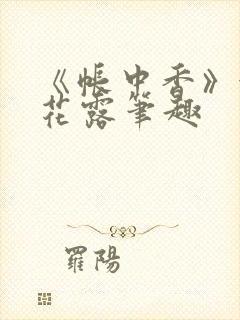 《帐中香》
花露笔趣
羅陽